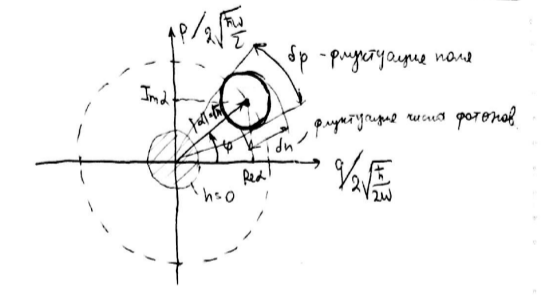 p/2√(ħω/2)
δp - флуктуация поля
Imα
|α|=√n
флуктуация числа фотонов
φ
δn
Reα
q/2√(ħ/2ω)
n=0